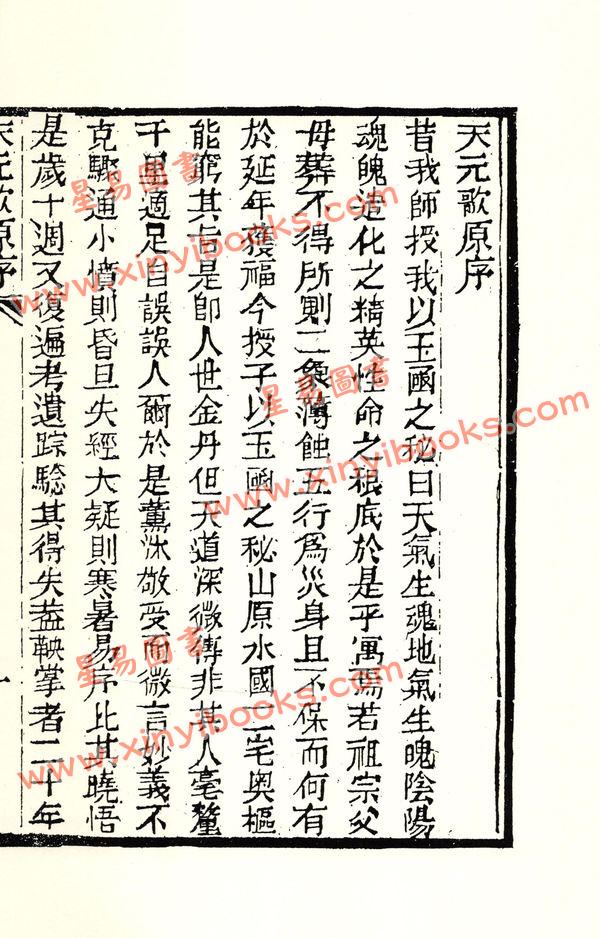 天元歌原序
昔我師授我以玉函之秘曰天氣生魂地氣生魄陰陽
魂魄造化之精英性命之根底於是乎寓焉若祖宗父
母葬不得所則二象薄蝕五行為災身且不保而何有
於延年獲福今授子以玉函之秘山原水國二宅奧樞
能窮其旨是即人世金丹但天道深微傳非其人毫釐
千里適足自誤誤人爾於是薰沐敬受而微言妙義不
克驟通小憤則昏旦失經大疑則寒暑易序比其曉悟
是歲十週又復遍考遺踪驗其得失蓋鞅掌者二十年
天元歌原序
一
星易图書
www.xinyibooks.com
星易图書
www.xinyibooks.com
星易图書
www.xinyibooks.com